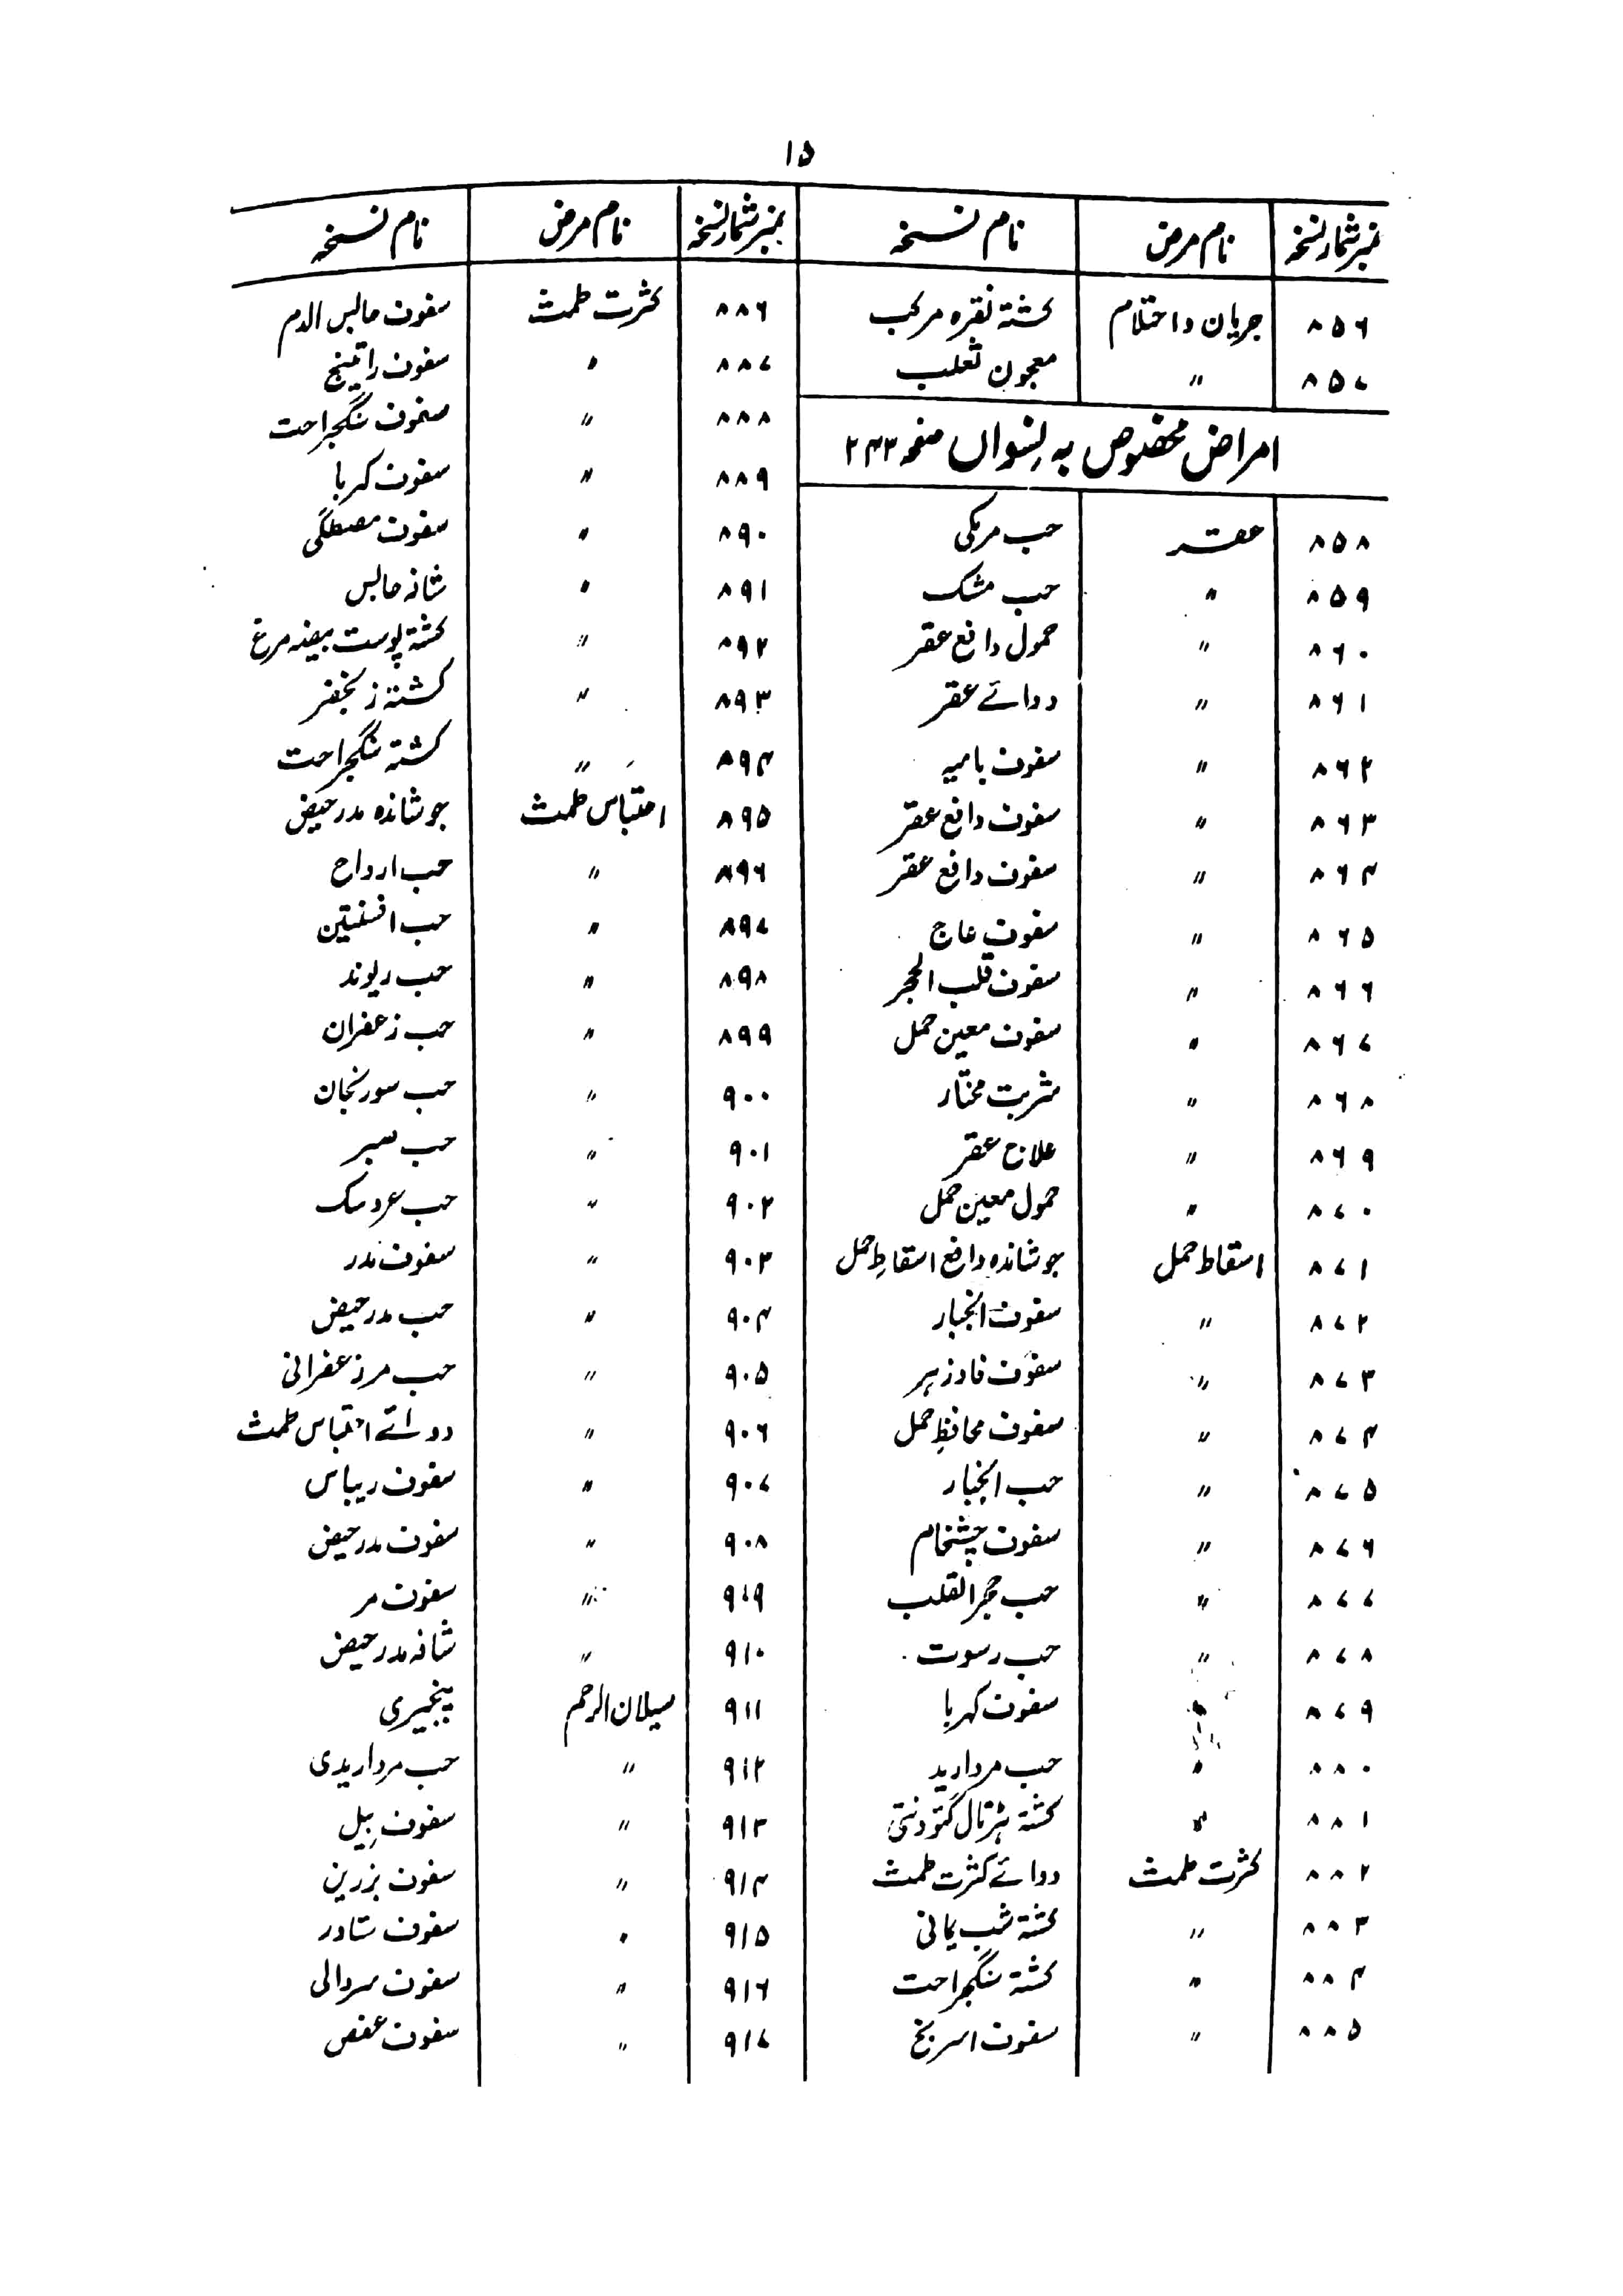 ۱۵
نمبر شمار نسخہ	نام مرض	نام نسخہ
۸۵۶	جریان و احتلام	کشتہ نقرہ مرکب
۸۵۷	〃	معجون ثعلب
امراض مخصوص بہ نسواں صفحہ ۲۴۳
۸۵۸	عقر	حب مرمکی
۸۵۹	〃	حب مشک
۸۶۰	〃	حمول دافع عقر
۸۶۱	〃	دوائے عقر
۸۶۲	〃	سفوف بامیہ
۸۶۳	〃	سفوف دافع عقر
۸۶۴	〃	سفوف دافع عقر
۸۶۵	〃	سفوف عاج
۸۶۶	〃	سفوف قلب الحجر
۸۶۷	〃	سفوف معین حمل
۸۶۸	〃	شربت مختار
۸۶۹	〃	علاج عقر
۸۷۰	〃	حمول معین حمل
۸۷۱	اسقاط حمل	جوشاندہ دافع اسقاطِ حمل
۸۷۲	〃	سفوف انجبار
۸۷۳	〃	سفوف فادزہر
۸۷۴	〃	سفوف محافظِ حمل
۸۷۵	〃	حب انجبار
۸۷۶	〃	سفوف چشخام
۸۷۷	〃	حب حجر القلب
۸۷۸	〃	حب رسوت
۸۷۹	〃	سفوف کہربا
۸۸۰	〃	حب مروارید
۸۸۱	〃	کشتہ ہڑتال گئودنتی
۸۸۲	کثرت طمث	دوائے کثرت طمث
۸۸۳	〃	کشتہ شب یمانی
۸۸۴	〃	کشتہ سنگجراحت
۸۸۵	〃	سفوف اسرنج
نمبر شمار نسخہ	نام مرض	نام نسخہ
۸۸۶	کثرت طمث	سفوف حابس الدم
۸۸۷	〃	سفوف راتینج
۸۸۸	〃	سفوف سنگجراحت
۸۸۹	〃	سفوف کہربا
۸۹۰	〃	سفوف مصطگی
۸۹۱	〃	شافہ حابس
۸۹۲	〃	کشتہ پوست بیضہ مرغ
۸۹۳	〃	کشتہ زنجفر
۸۹۴	〃	کشتہ سنگجراحت
۸۹۵	احتباس طمث	جوشاندہ مدر حیض
۸۹۶	〃	حب ارواح
۸۹۷	〃	حب افسنتین
۸۹۸	〃	حب ریوند
۸۹۹	〃	حب زعفران
۹۰۰	〃	حب سورنجان
۹۰۱	〃	حب
۹۰۲	〃	حب
۹۰۳	〃	سفوف مدر
۹۰۴	〃	حب مدر حیض
۹۰۵	〃	حب مر زعفرانی
۹۰۶	〃	دوائے احتباس طمث
۹۰۷	〃	سفوف ریباس
۹۰۸	〃	سفوف مدر حیض
۹۰۹	〃	سفوف مر
۹۱۰	〃	شافہ مدر حیض
۹۱۱	سیلان الرحم	پنجیری
۹۱۲	〃	حب مرواریدی
۹۱۳	〃	سفوف بیل
۹۱۴	〃	سفوف بزرین
۹۱۵	〃	سفوف ستادر
۹۱۶	〃	سفوف سروالی
۹۱۷	〃	سفوف عفص